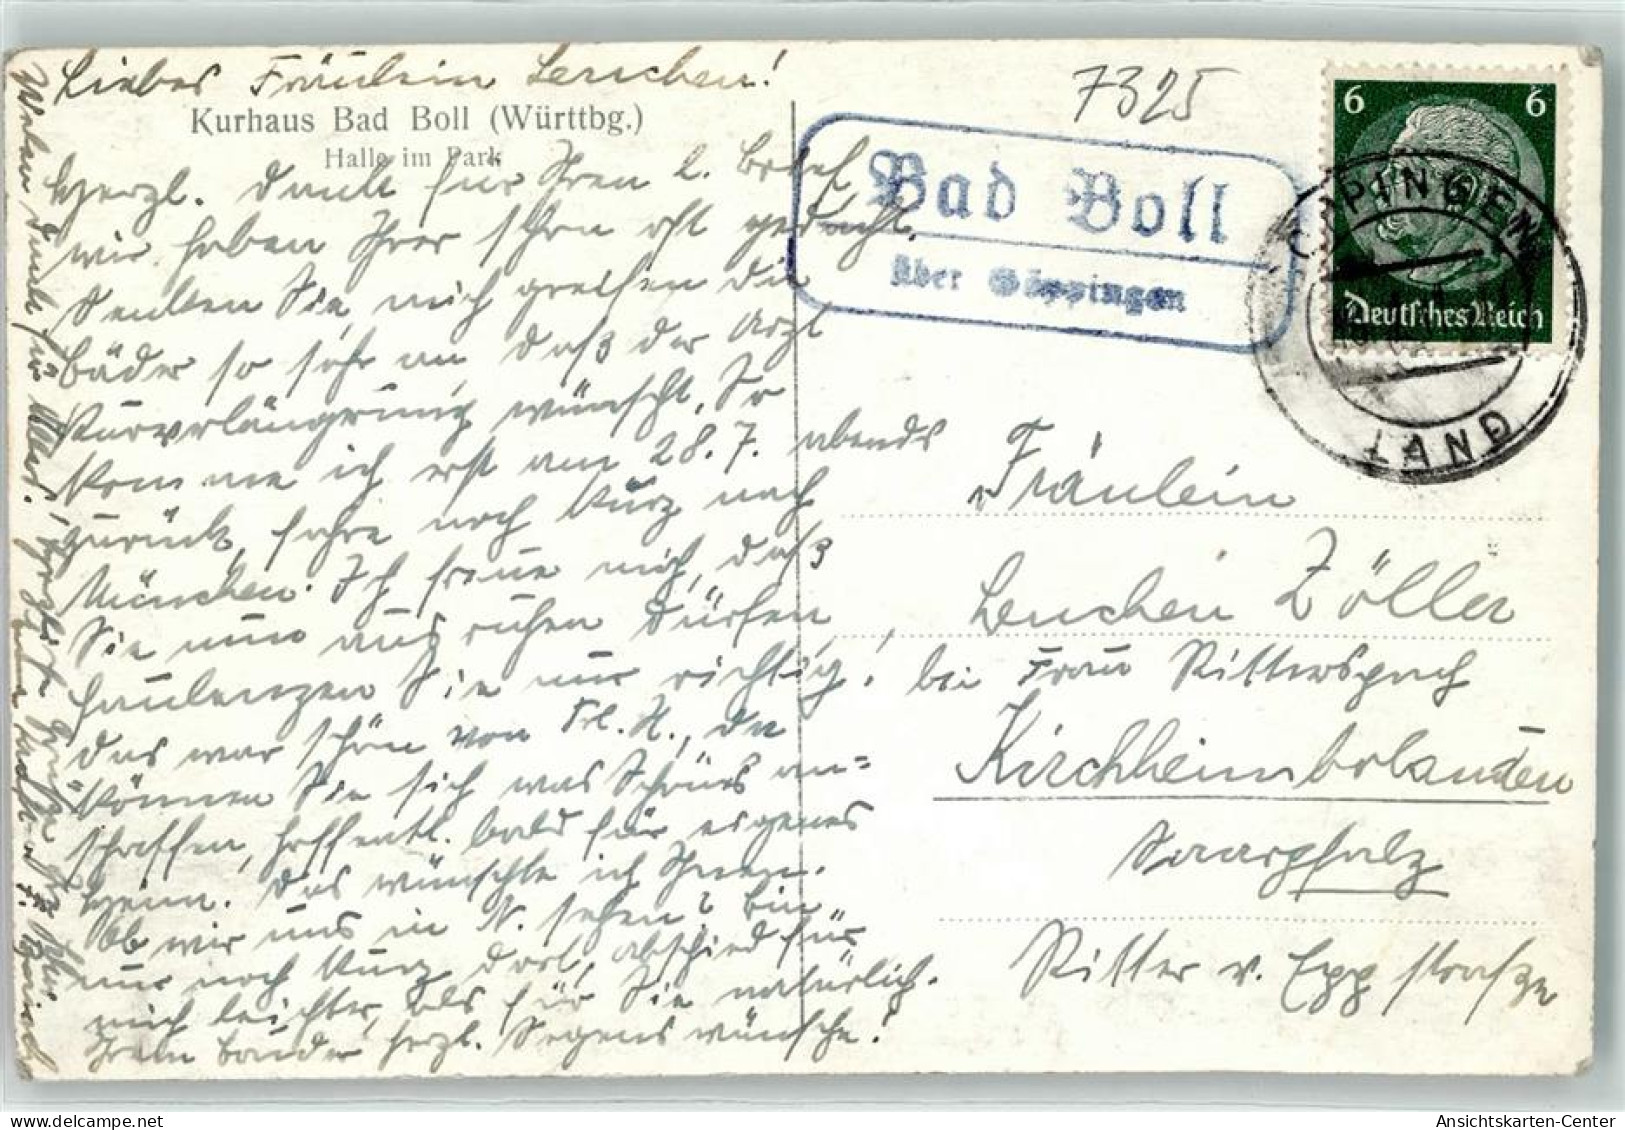 Liebes Fräulein Lenchen!
Kurhaus Bad Boll (Württbg.)
Halle im Park
Herzl. Dank für Ihren l. Brief,
wir haben Ihrer schon oft gedacht.
Denken Sie, mich greifen die
Bäder so sehr an daß der Arzt
Kurverlängerung wünscht. So
komme ich erst am 28.7. abends
zurück, fahre noch kurz nach
München. Ich freue mich, daß
Sie nun ausruhen dürfen,
faulenzen Sie nur richtig!
Das war schön von Frl. H., da
können Sie sich was Schönes an=
schaffen, hoffentl. bald für eigenes
Heim. Das wünschte ich Ihnen.
Ob wir uns in N. sehen? Bin
nur noch kurz dort, Abschied für
mich leichter als für Sie natürlich.
Ihrem Bruder herzl. Segenswünsche!
Vielen Dank für Alles! Herzliche Grüße
7325
Bad Boll
über Göppingen
6 6
Deutsches Reich
GÖPPINGEN
LAND
Fräulein
Lenchen Zöller
bei Frau Ritterspach
Kirchheimbolanden
Saarpfalz
Ritter v. Epp straße
www.ansichtskartenversand.com
Ansichtskarten-Center